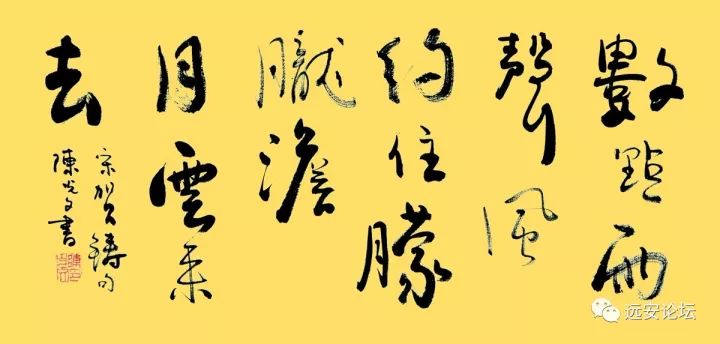 數點雨
聲風
約住朦
朧澹
月雲來
去
宋賀鑄句
陳書
远安论坛